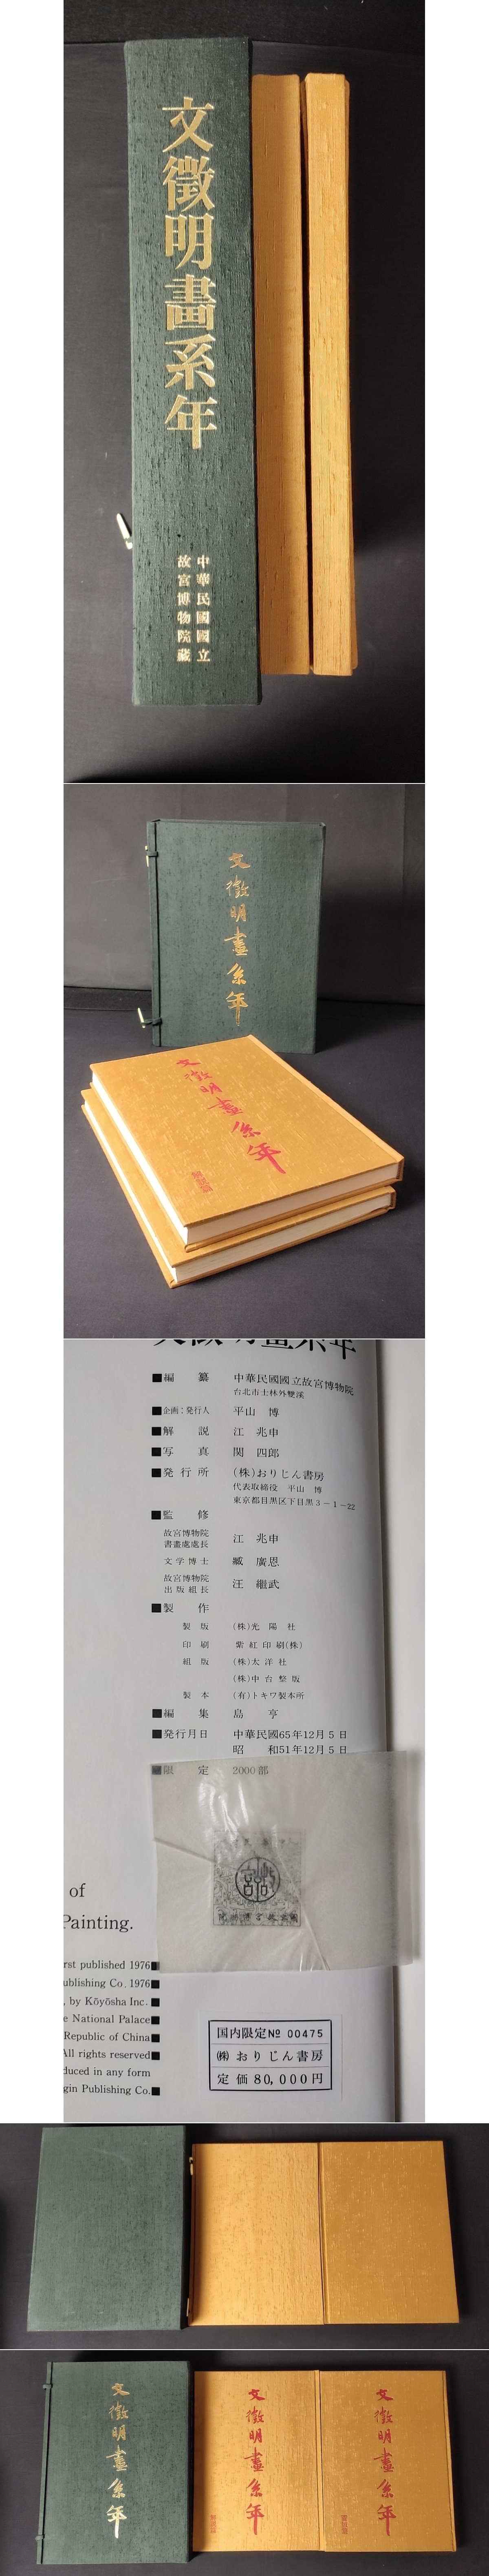 文徵明畫系年
中華民國國立
故宮博物院藏
文徵明畫系年
文徵明畫系年
文徵明畫系年
■編 纂 中華民國國立故宮博物院
台北市士林外雙溪
■企画:発行人 平山 博
■解 説 江 兆申
■写 真 関 四郎
■発行所 (株)おりじん書房
代表取締役 平山 博
東京都目黒区下目黒3-1-22
■監 修
故宮博物院
書畫處處長 江 兆申
文学博士 臧 廣恩
故宮博物院
出版組長 汪 繼武
■製 作
製 版 (株)光 陽 社
印 刷 紫紅印刷(株)
組 版 (株)太洋社
(株)中台整版
製 本 (有)トキワ製本所
■編 集 島 亨
■発行月日 中華民國65年12月5日
昭 和51年12月5日
■限 定 2000部
of
Painting.
rst published 1976■
ublishing Co. 1976■
, by Kōyōsha Inc.■
e National Palace■
Republic of China■
All rights reserved■
duced in any form
gin Publishing Co.■
国内限定№ 00475
㈱ おりじん書房
定価 80,000円
文徵明畫系年
文徵明畫系年
文徵明畫系年